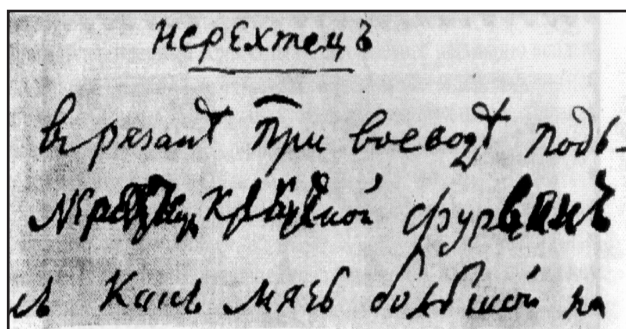 нерехтецЪ
въ рязанѣ При воеводѣ подь-
фурвинЪ
лъ Какъ мячь большой на